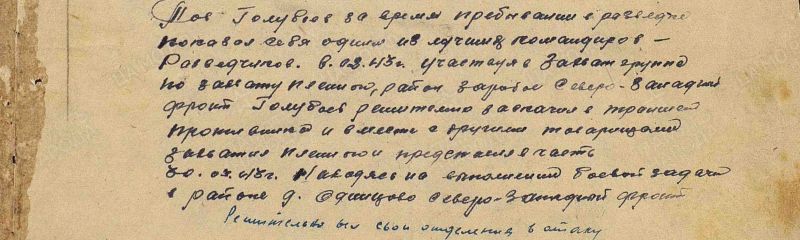 Тов Голубев за время пребывании в разведке
показал себя одним из лучших командиров –
Разведчиков. в.02.43г. участвуя в Захват группе
по захвату пленного, район Северо-Западный
фронт Голубев решительно заскочил в траншею
противника и вместе с другими товарищами
захватил пленного и представил в часть
30.03.43г. Находясь на выполнении боевой задачи
в районе д. Одинцово Северо-Западный фронт
Решительно вел свои отделения в атаку